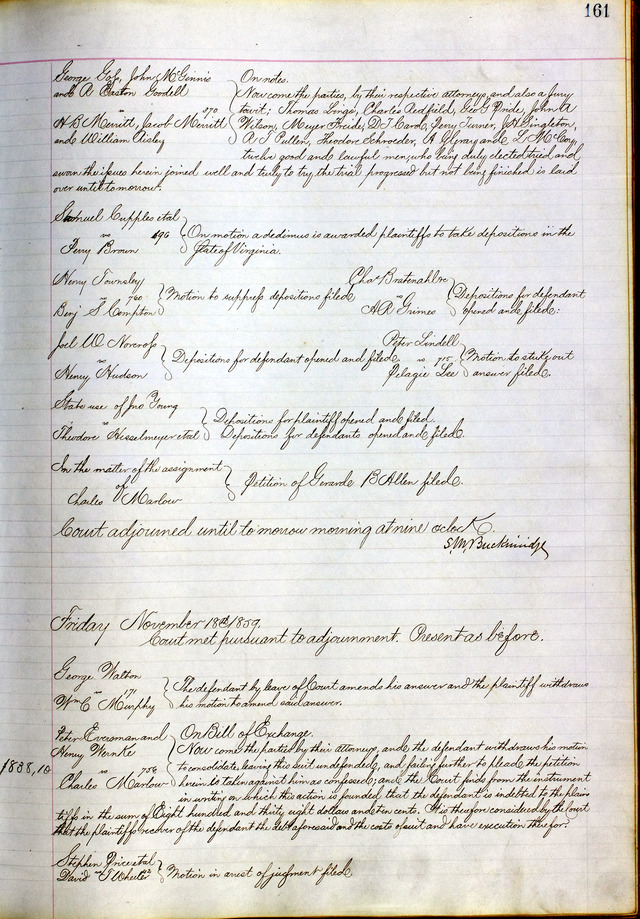 161
George Gass, John McGinnis
and A Easton Goodell
vs 570
H B Merritt, Jacob Merritt
and William Risley
On notes.
Now come the parties, by their respective attorneys, and also a jury
towit; Thomas Lingo, Charles Redfield, Geo G Pride, John A
Wilson, Meyer Friede, D T Card, Jerry Turner, J H Singleton,
A J Pullen, Theodore Schroeder, A Olgray and L McCoy,
twelve good and lawful men; who being duly elected tried and
sworn the issues herein joined well and truly to try, the trial progressed but not being finished is laid
over until tomorrow.
Samuel Cupples etal
vs 496
Perry Brown
On motion a dedimus is awarded plaintiffs to take depositions in the
State of Virginia.
Henry Townsley
vs 760
Benj S Compton
Motion to suppress depositions filed
Chas Bratenahl
vs
A R Grimes
Depositions for defendant
opened and filed:
Joel W Norcross
vs
Henry Hudson
Depositions for defendant opened and filed
Peter Lindell
vs 715
Pelagie Lee
Motion to strike out
answer filed.
State use of Jno Young
vs
Theodore Hesselmeyer etal
Depositions for plaintiff opened and filed.
Depositions for defendants opened and filed.
In the matter of the assignment
of
Charles Marlow
Petition of Gerard B Allen filed.
Court adjourned until to morrow morning at nine oclock.
S.M. Breckinridge
Friday November 18th 1859.
Court met pursuant to adjournment. Present as before.
George Walton
vs 171
Wm C Murphy
The defendant by leave of Court amends his answer and the plaintiff withdraws
his motion to amend said answer.
Peter Eversman and
Henry Wernke
vs 756
Charles Marlow
On Bill of Exchange.
Now come the parties by their attorneys, and the defendant withdraws his motion
to consolidate, leaving this suit undefended, and failing further to plead, the petition
herein is taken against him as confessed; and the Court finds from the instrument
in writing on which this action is founded that the defendant is indebted to the plain
tiffs in the sum of Eight hundred and thirty eight dollars and ten cents. It is therefore considered by the court
that the plaintiffs recover of the defendant the debt aforesaid and the costs of suit and have execution therefor.
$838,10
Stephen Price etal
vs
David T Wheeler
Motion in arrest of judgment filed